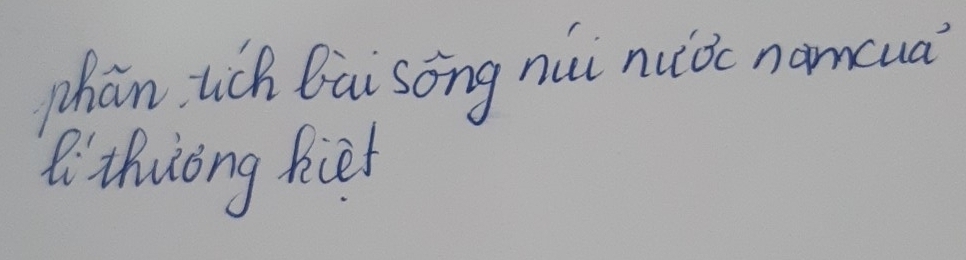 phân tích bài sông núi nước nam của
lí thường kiệt